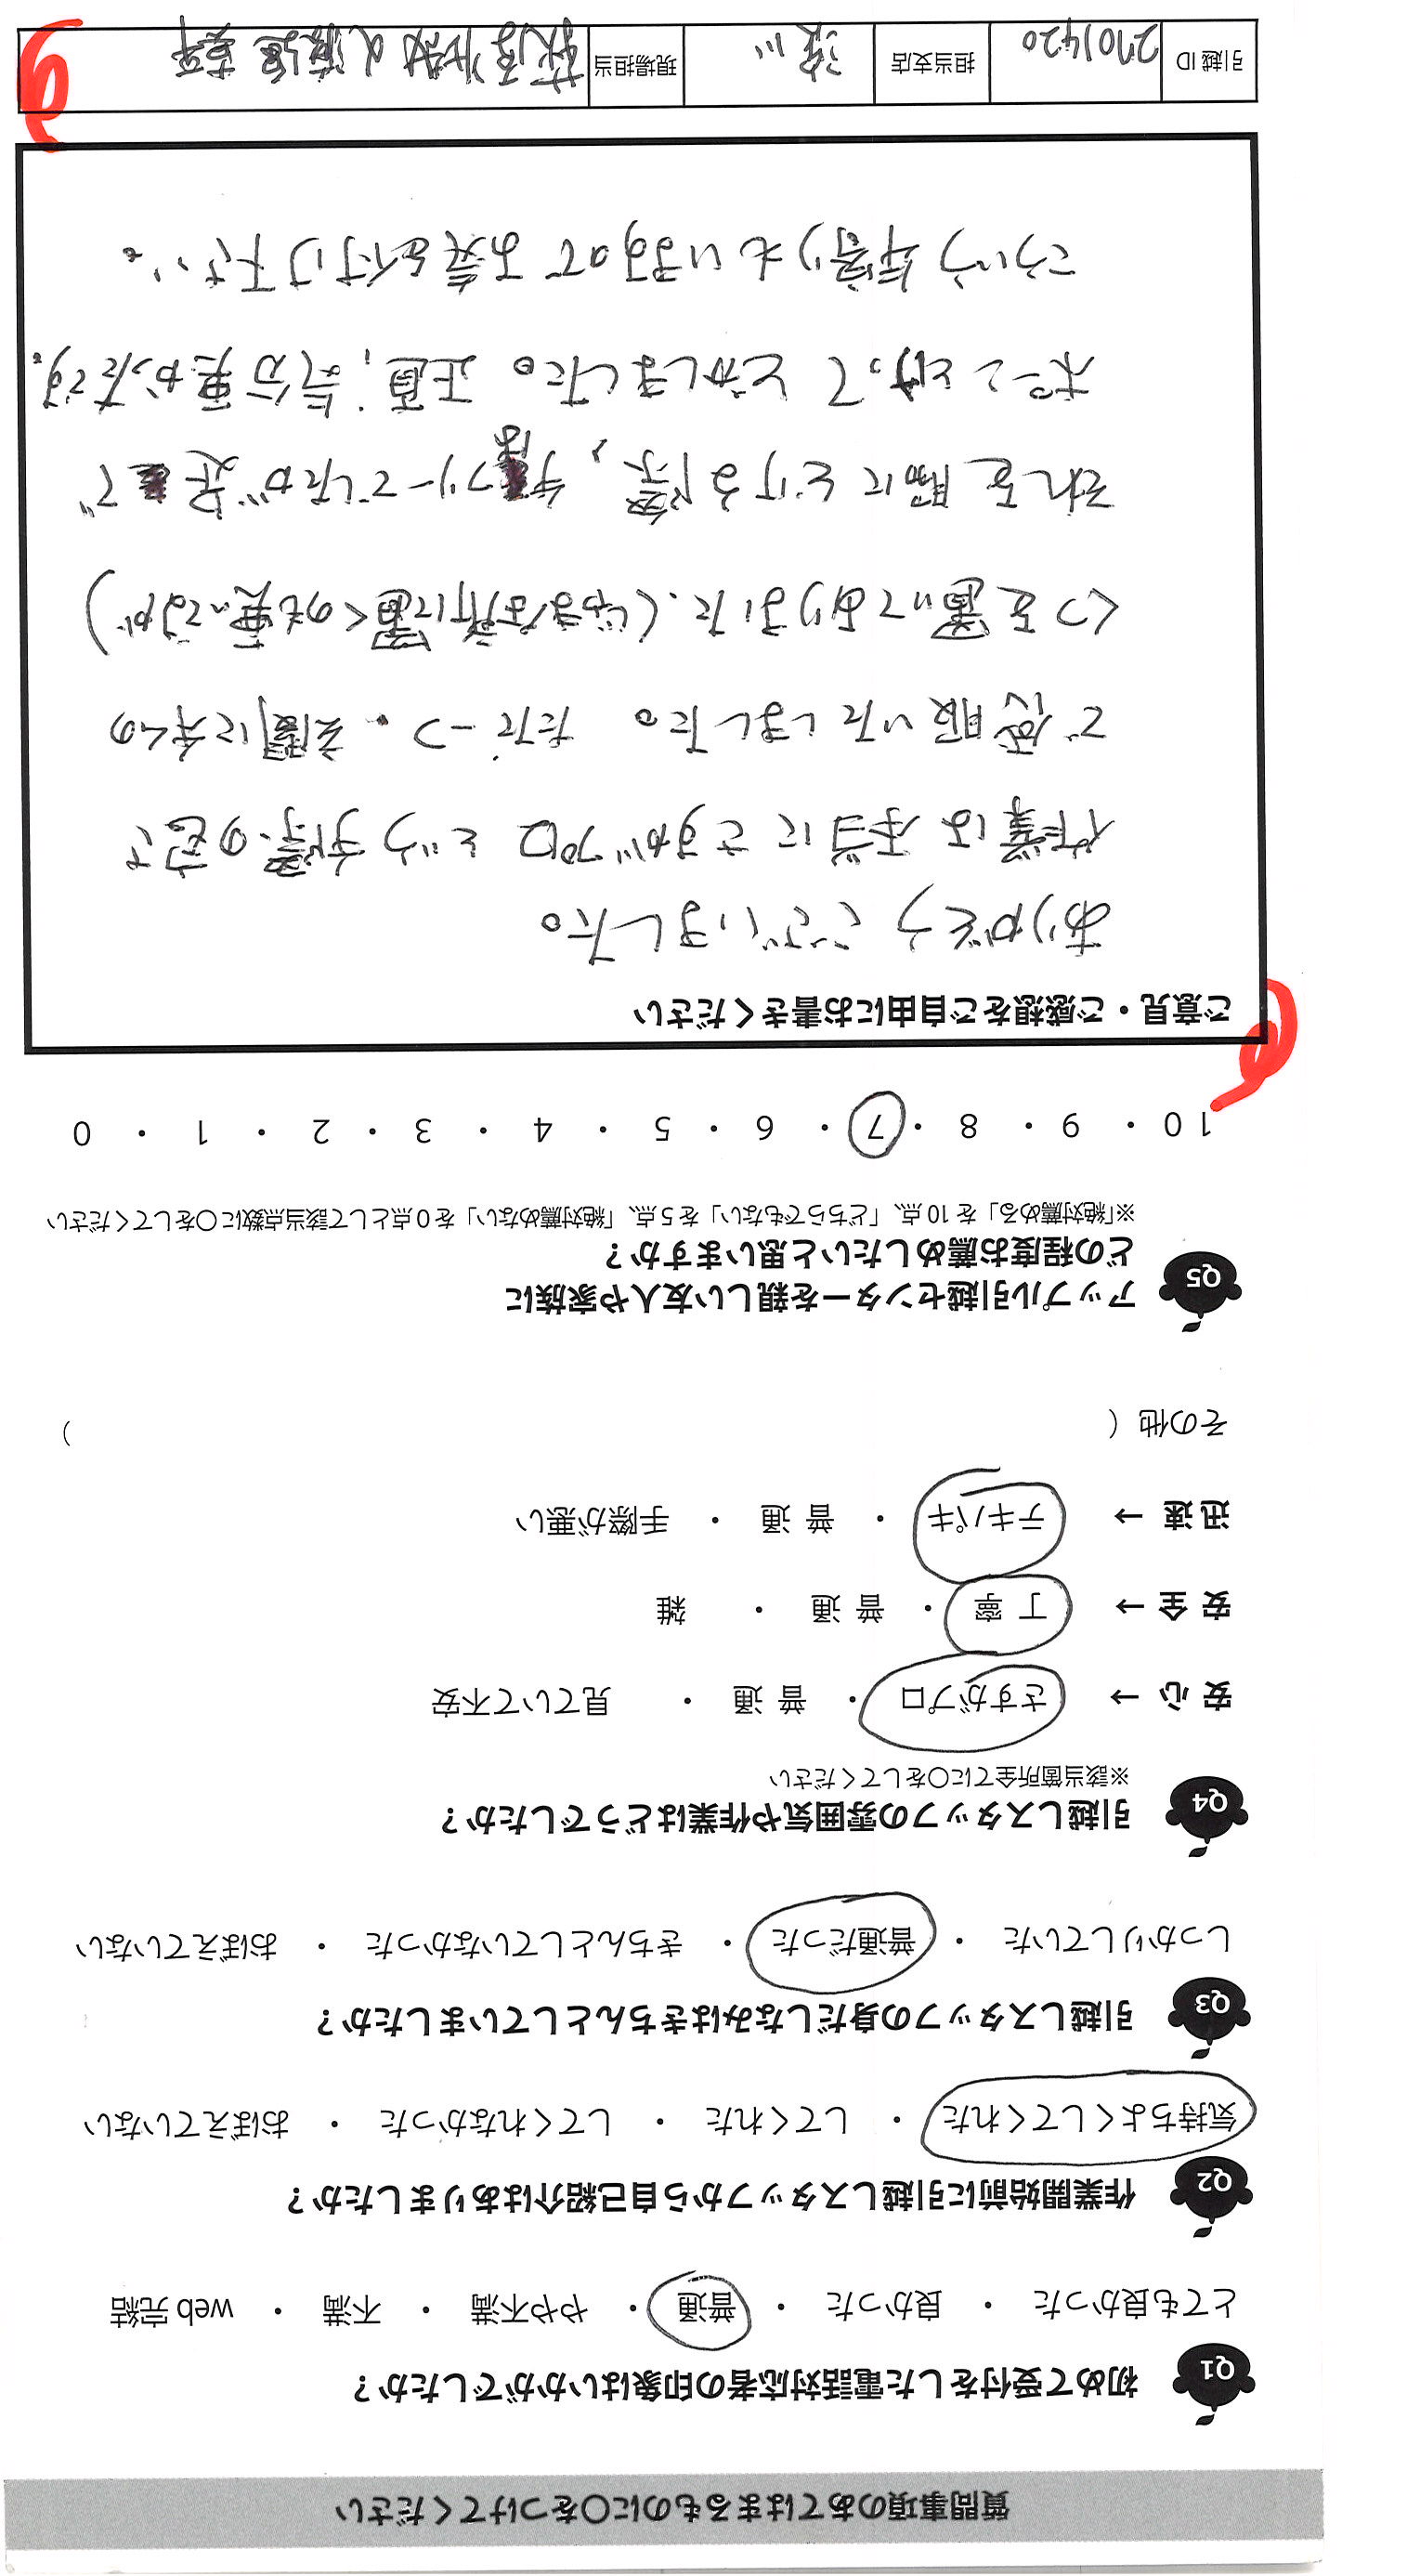 質問事項のあてはまるものに〇をつけてください
Q1 初めて受付をした電話対応者の印象はいかがでしたか？
とても良かった ・ 良かった ・ 普通 ・ やや不満 ・ 不満 ・ web完結
Q2 作業開始前に引越しスタッフから自己紹介はありましたか？
気持ちよくしてくれた ・ してくれた ・ してくれなかった ・ おぼえていない
Q3 引越しスタッフの身だしなみはきちんとしていましたか？
しっかりしていた ・ 普通だった ・ きちんとしていなかった ・ おぼえていない
Q4 引越しスタッフの雰囲気や作業はどうでしたか？
※該当箇所全てに〇をしてください
安心 → さすがプロ ・ 普通 ・ 見ていて不安
安全 → 丁寧 ・ 普通 ・ 雑
迅速 → テキパキ ・ 普通 ・ 手際が悪い
その他（ ）
Q5 アップル引越センターを親しい友人や家族に
どの程度お薦めしたいと思いますか？
※「絶対薦める」を10点、「どちらでもない」を5点、「絶対薦めない」を0点として該当点数に〇をしてください
10 ・ 9 ・ 8 ・ 7 ・ 6 ・ 5 ・ 4 ・ 3 ・ 2 ・ 1 ・ 0
ご意見・ご感想をご自由にお書きください
ありがとうございました。
作業は本当にさすがプロという手際の良さ
で感服いたしました。ただ一つ、玄関に私の
くつを置いてありました、（じゃまな所に置くのも悪いですが）
それを脇にどける際、手はフリーでしたが足で
ポーンとけってどかしました。正直、気分悪かったです。
こういう年寄りもいますのでお気を付け下さい。
引越ID 2701420 担当支店 現場担当